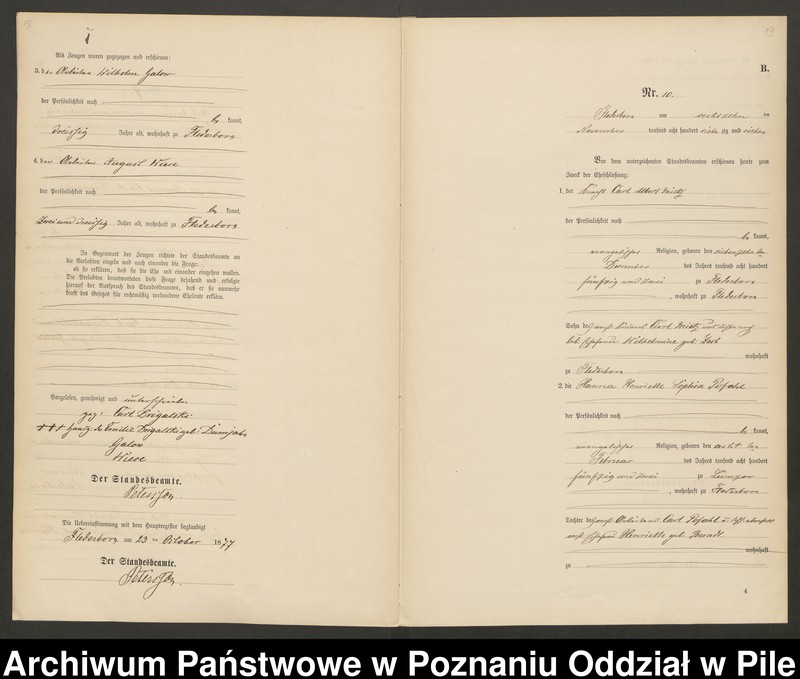 Als Zeugen waren zugezogen und erschienen:
3. der Arbeiter Wilhelm Galow
der Persönlichkeit nach
be kannt,
dreissig Jahre alt, wohnhaft zu Flederborn
4. der Arbeiter August Wiese
der Persönlichkeit nach
be kannt,
zwei und dreissig Jahre alt, wohnhaft zu Flederborn
In Gegenwart der Zeugen richtete der Standesbeamte an
die Verlobten einzeln und nach einander die Frage:
ob sie erklären, daß sie die Ehe mit einander eingehen wollen.
Die Verlobten beantworteten diese Frage bejahend und erfolgte
hierauf der Ausspruch des Standesbeamten, daß er sie nunmehr
kraft des Gesetzes für rechtmäßig verbundene Eheleute erkläre.
Vorgelesen, genehmigt und unterschrieben
gez: Carl
+++ Handz. der geb:
Galow
Wiese
Der Standesbeamte.
Die Uebereinstimmung mit dem Hauptregister beglaubigt
Flederborn am 23 ten October 1877
Der Standesbeamte.
B.
Nr. 10.
Flederborn am sechszehn ten
November tausend acht hundert siebenzig und sieben
Vor dem unterzeichneten Standesbeamten erschienen heute zum
Zweck der Eheschließung:
1. der Knecht Carl Albert
der Persönlichkeit nach
be kannt,
evangelischer Religion, geboren den siebenzehn ten
December des Jahres tausend acht hundert
fünfzig und zwei zu Flederborn
, wohnhaft zu Flederborn
Sohn des Carl und dessen
Ehefrau Wilhelmine geb.
wohnhaft
zu Flederborn
2. die Hanna Henriette Sophia Posahl
der Persönlichkeit nach
be kannt,
evangelischer Religion, geboren den acht ten
Februar des Jahres tausend acht hundert
fünfzig und zwei zu
, wohnhaft zu Flederborn
Tochter des Arbeiters Carl Posahl
Ehefrau Henriette geb. Berndt
wohnhaft
zu
4
Archiwum Państwowe w Poznaniu Oddział w Pile